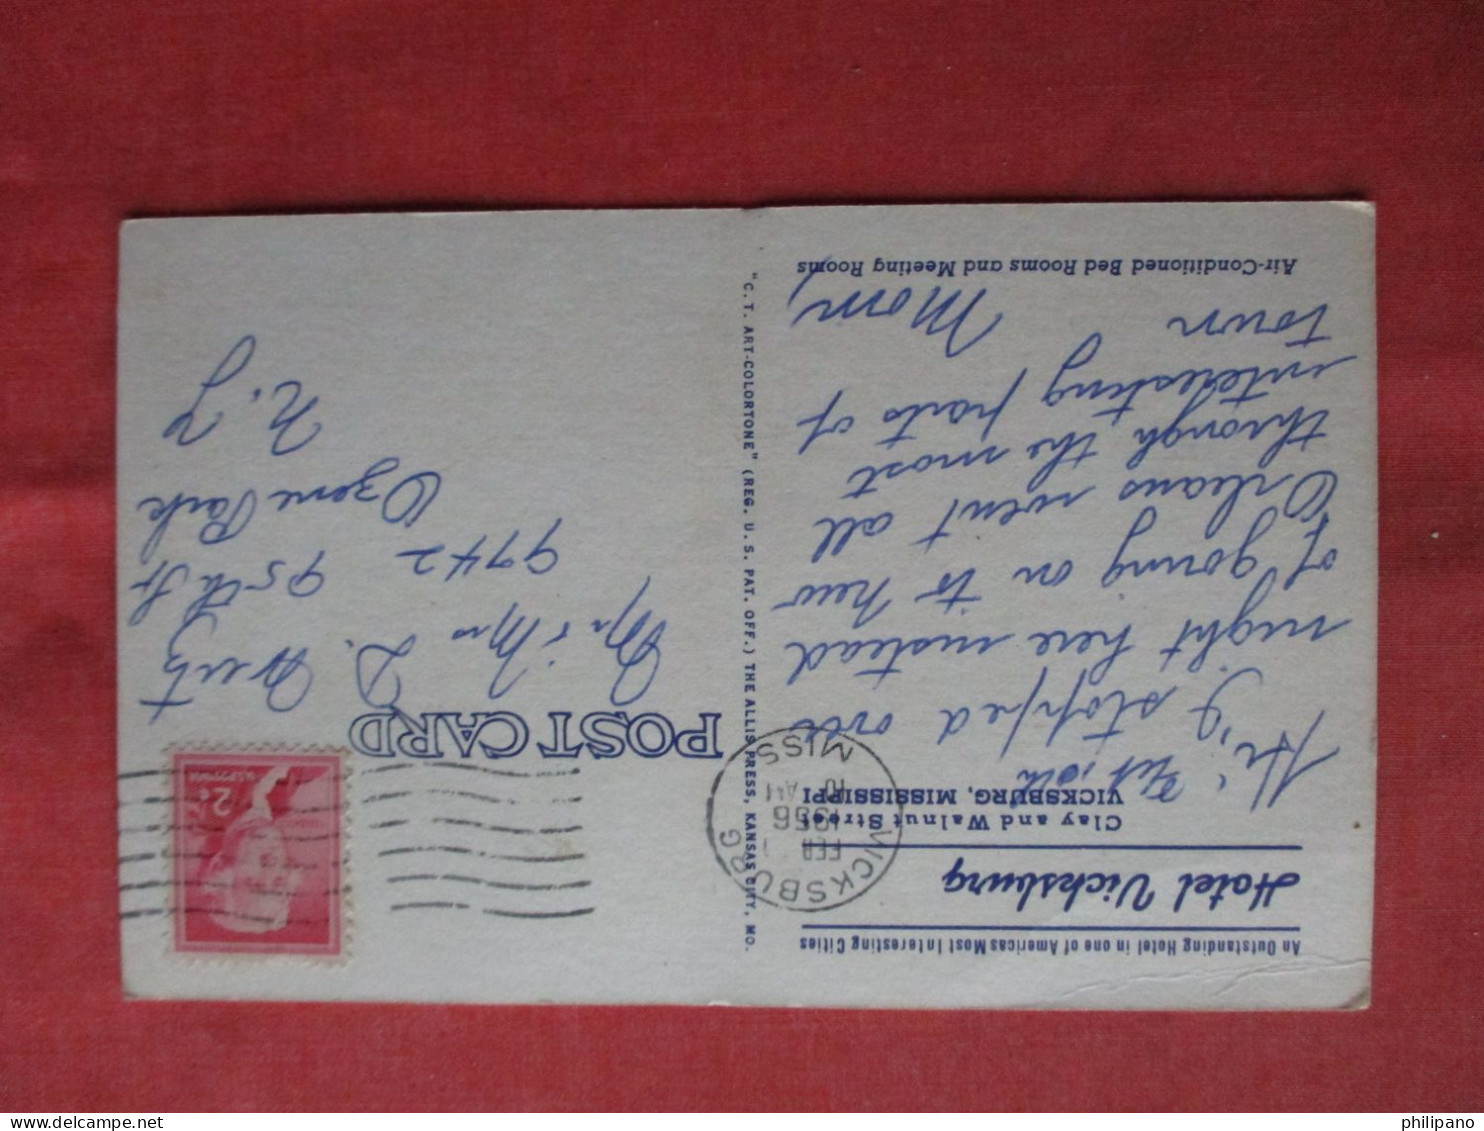 An Outstanding Hotel in one of Americas Most Interesting Cities
Hotel Vicksburg
Clay and Walnut Street
VICKSBURG, MISSISSIPPI
Feb. 10th
Hi,
I stopped over
night here instead
of going on to New
Orleans went all
through the most
interesting parts of
town
Mom,
Air-Conditioned Bed Rooms and Meeting Rooms
"C. T. ART-COLORTONE" (REG. U. S. PAT. OFF.) THE ALLIS PRESS, KANSAS CITY, MO.
VICKSBURG
FEB 1
10 AM
1956
MISS
POST CARD
U.S. POSTAGE
2¢
Mr & Mrs D.
9742 95th St
Ozone Park
N.Y
philipano